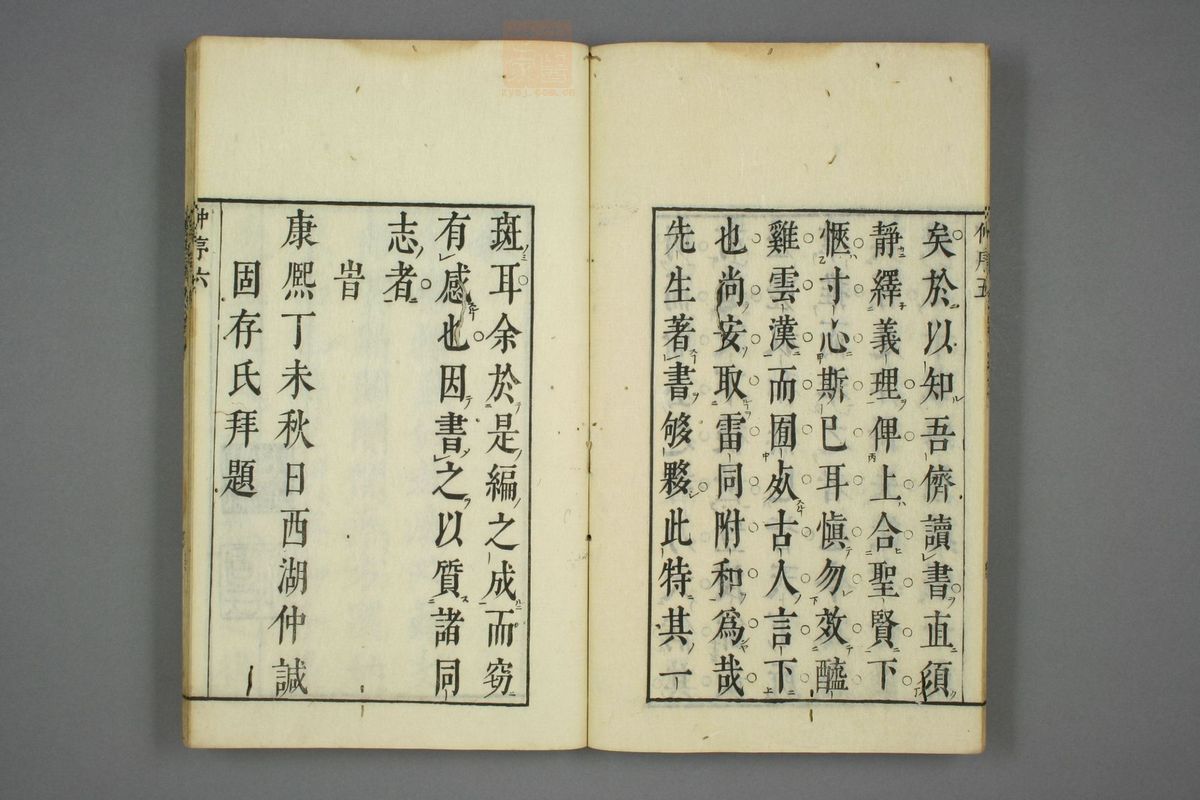 矣於以知吾儕讀書直須
靜繹義理俾上合聖賢下
愜寸心斯已耳慎勿效醯
雞雲漢而囿於古人言下
也尚安取雷同附和為哉
先生著書够夥此特其一
仲序五
斑耳余於是編之成而竊
有感也因書之以質諸同
志者
旹
康熙丁未秋日西湖仲誠
固存氏拜題
仲序六
zysj.com.cn